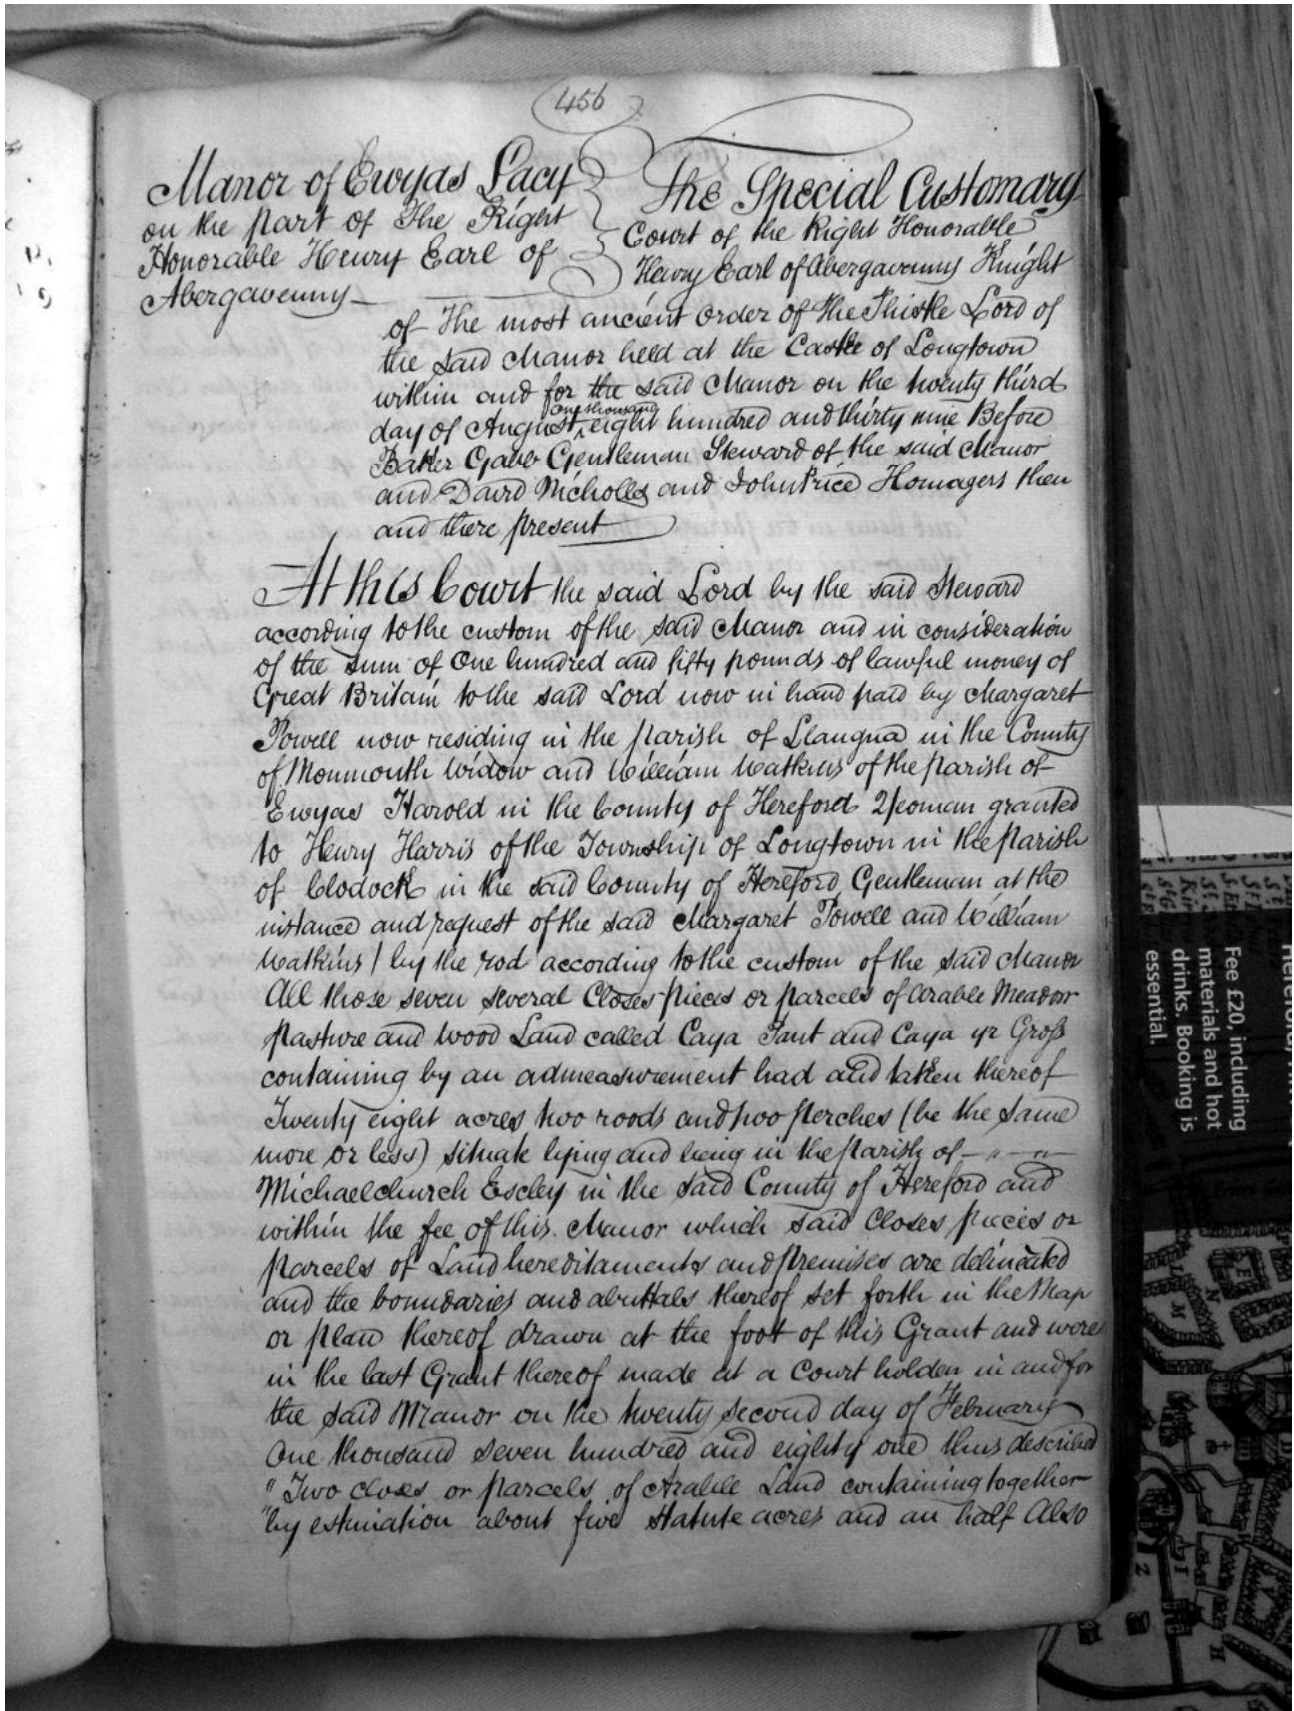 456
Manor of Ewyas Lacy
on the part of The Right
Honorable Henry Earl of
Abergavenny
The Special Customary
Court of the Right Honorable
Henry Earl of Abergavenny Knight
of The most ancient order of the Thistle Lord of
the said Manor held at the Castle of Longtown
within and for the said Manor on the twenty third
day of August one thousand eight hundred and thirty nine Before
Baker Gabb Gentleman Steward of the said Manor
and David Nicholls and John Price Homagers then
and there present
At this Court the said Lord by the said Steward
according to the custom of the said Manor and in consideration
of the sum of One hundred and fifty pounds of lawful money of
Great Britain to the said Lord now in hand paid by Margaret
Powell now residing in the parish of Llangua in the County
of Monmouth Widow and William Watkins of the parish of
Ewyas Harold in the County of Hereford Yeoman granted
to Henry Harris of the Township of Longtown in the parish
of Clodock in the said County of Hereford Gentleman at the
instance and request of the said Margaret Powell and William
Watkins / by the rod according to the custom of the said Manor
All those seven several Closes pieces or parcels of Arable Meadow
pasture and Wood Land called Caya Tant and Caya yr Groß
containing by an admeasurement had and taken thereof
Twenty eight acres two roods and two perches (be the same
more or less) situate lying and being in the parish of
Michaelchurch Escley in the said County of Hereford and
within the fee of this Manor which said Closes pieces or
parcels of Land hereditaments and premises are delineated
and the boundaries and abuttals thereof set forth in the Map
or plan thereof drawn at the foot of this Grant and were
in the last Grant thereof made at a Court holden in and for
the said Manor on the twenty second day of February
One thousand seven hundred and eighty one thus described
"Two closes or parcels of Arable Land containing together
"by estimation about five statute acres and an half Also
Fee £20, including
materials and hot
drinks. Booking is
essential.